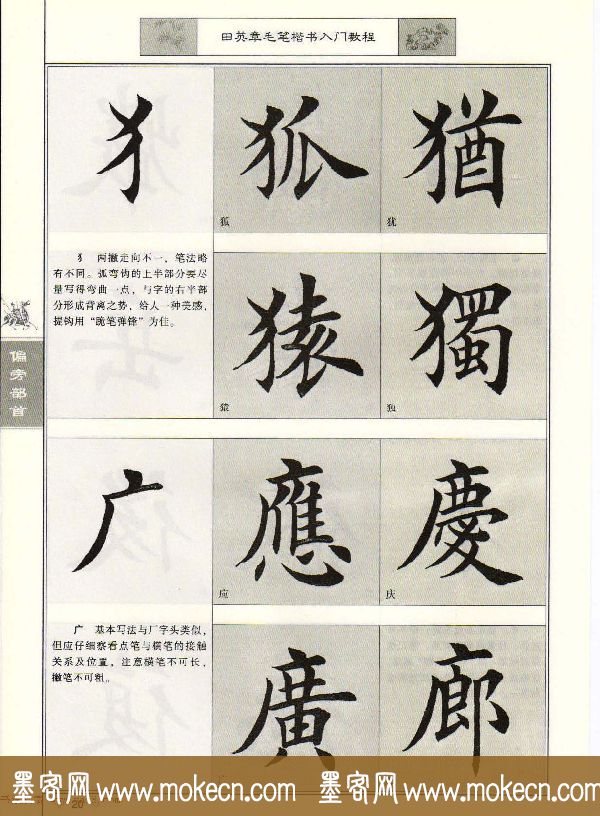 田英章毛笔楷书入门教程
犭 狐 猶
狐 犹
犭 两撇走向不一，笔法略
有不同。弧弯钩的上半部分要尽
量写得弯曲一点，与字的右半部
分形成背离之势，给人一种美感，
提钩用“跪笔弹锋”为佳。
猿 獨
猿 独
偏旁部首
广 應 慶
应 庆
广 基本写法与厂字头类似，
但应仔细察看点笔与横笔的接触
关系及位置，注意横笔不可长，
撇笔不可粗。
廣 廊
墨客网 www.mokecn.com 墨客网 www.mokecn.com
20